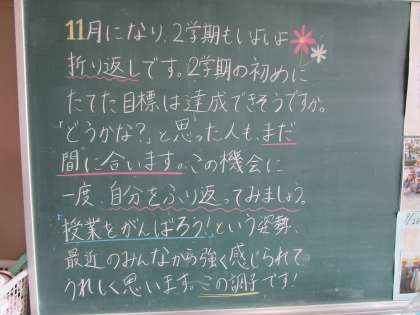 11月になり、2学期もいよいよ
折り返しです。2学期の初めに
たてた目標は達成できそうですか。
「どうかな?」と思った人も、まだ
間に合います。この機会に
一度、自分をふり返ってみましょう。
「授業をがんばろう!」という姿勢、
最近のみんなから強く感じられて
うれしく思います。この調子です!